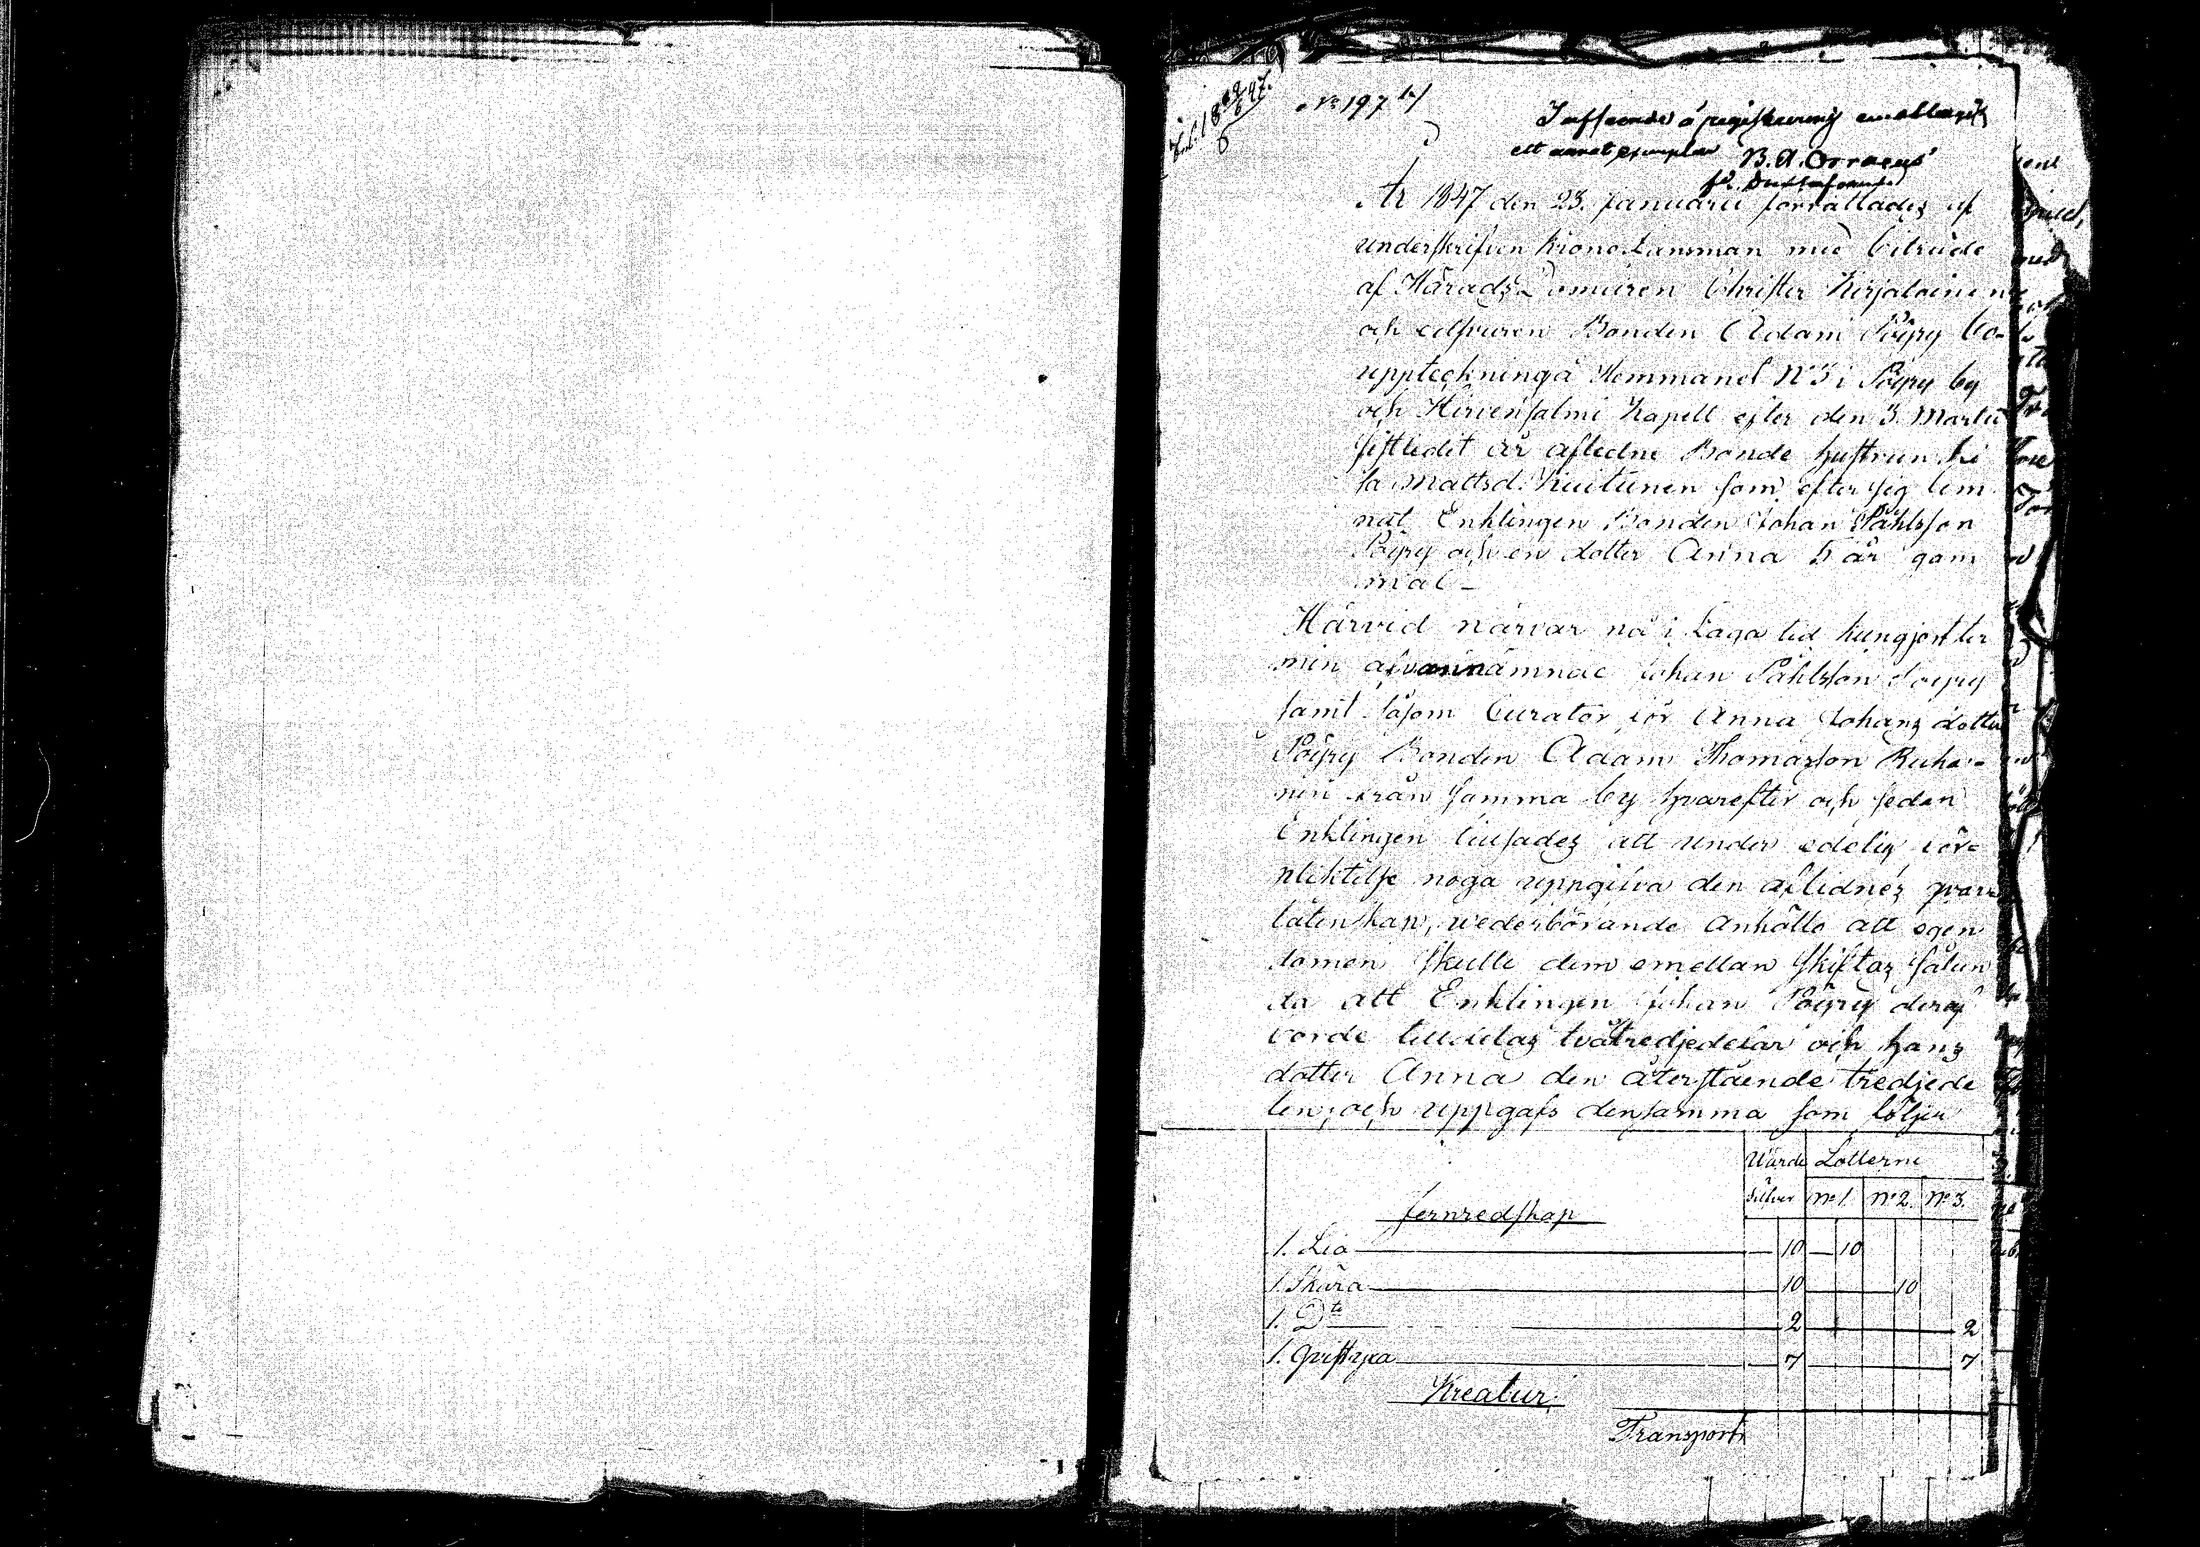 No 197
ett annat exemplar B. A. Orraeus
År 1847 den 23. Januarii förrättades af
underskrifven Krono Länsman med biträde
af Härads Domaren Christer Kirjalaine
och edsvuren Bonden Adam Pöyry bo-
uppteckning å Hemmanet No 3 i Pöyry by
och Hirvensalmi Kapell efter den 3. Martii
sistledit år afledne Bonde hustrun Li
sa Mattsd. Kuitunen som efter sig lem
nat Enklingen Bonden Johan Påhlsson
Pöyry och en dotter Anna 5 år gam
mal -
Härvid närvar nå i Laga tid kungjort ter
min ofvannämnde Johan Påhlsson Pöyry
samt såsom Curator för Anna Johans dotter
Pöyry Bonden Adam Thomasson Ruha-
nen från samma by hvarefter och sedan
Enklingen tillsades att under edelig för-
pliktelse noga uppgifva den aflidnes qvar
låtenskap, wederbörande anhöllo att egen
domen skulle dem emellan skiftas sålun
da att Enklingen Johan Pöyry deraf
vorde tilldelas två tredjedelar och hans
dotter Anna den återstående tredjede
len; och uppgafs densamma som följer
Värde Lotterne
Silfver No 1. No 2. No 3.
Jernredskap
1. Lia 10 10
1. Skära 10 10
1. Dto 2 2
1. Qvistyxa 7 7
Kreatur
Transport